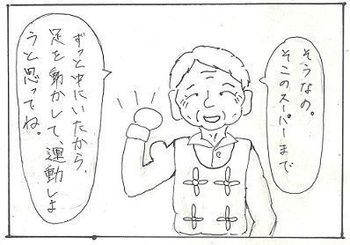 そうなの。
そこのスーパーまで
ずっと中にいたから、
足を動かして、運動しよ
うと思ってね。